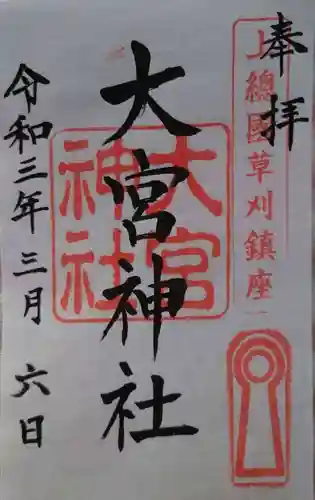 奉拝
上總國草刈鎮座
大宮神社
大宮神社
令和三年三月六日